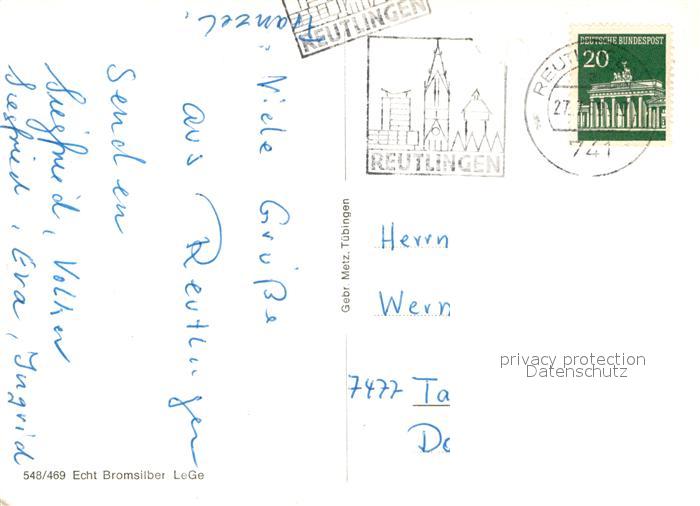 REUTLINGEN
REUTLINGEN
DEUTSCHE BUNDESPOST
20
27.
741
Viele Grüße
aus Reutlingen
senden
Siegfried, Volker
Siegfried, Eva, Ingrid
Gebr. Metz, Tübingen
Herrn
Wern
7477 Ta
Do
privacy protection
Datenschutz
548/469 Echt Bromsilber LeGe